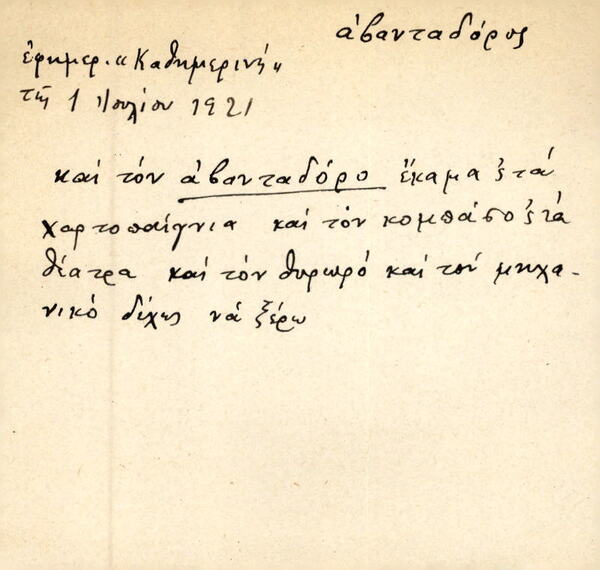 ἀβανταδόρος
ἐφημερ. «Καθημερινή»
τῆς 1 Ἰουλίου 1921
καί τόν ἀβανταδόρο ἔκαμα ς τά
χαρτοπαίγνια καί τόν κομπάρσο ς τά
θέατρα καί τόν θυρωρό καί τόν μηχα-
νικό δίχως νά ξέρω